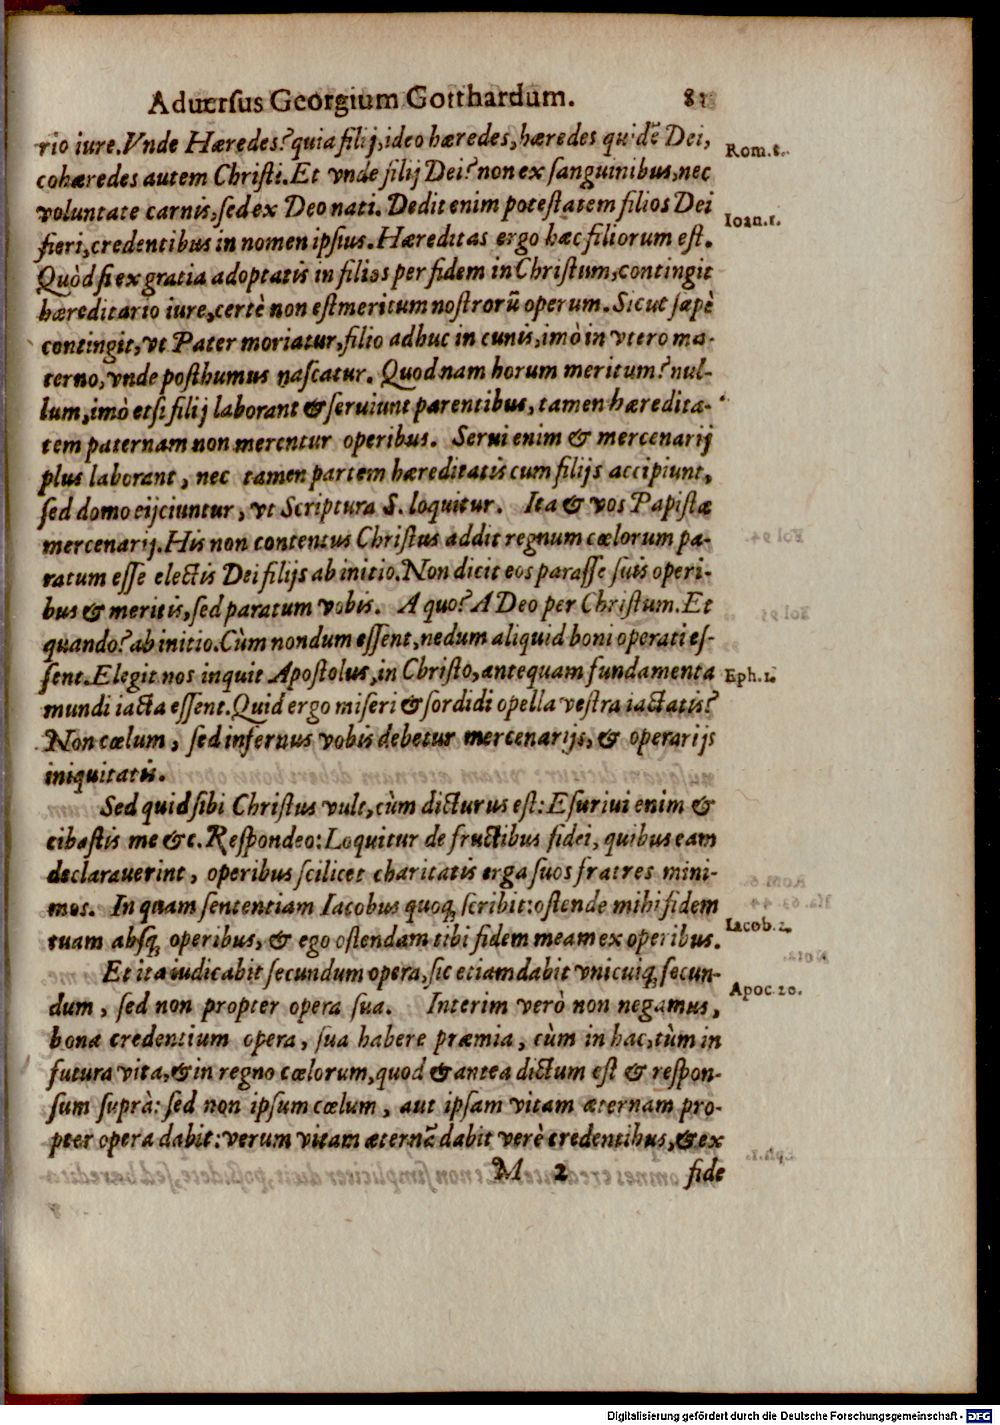 Aduersus Georgium Gotthardum. 81
rio iure. Vnde Hæredes? quia filij, ideo hæredes, hæredes quidē Dei,
Rom. 8.
cohæredes autem Christi. Et vnde filij Dei? non ex sanguinibus, nec
voluntate carnis, sed ex Deo nati. Dedit enim potestatem filios Dei
Ioan. 1.
fieri, credentibus in nomen ipsius. Hæreditas ergo hæc filiorum est.
Quòd si ex gratia adoptatis in filios per fidem in Christum, contingit
hæreditario iure, certè non est meritum nostrorū operum. Sicut sæpè
contingit, vt Pater moriatur, filio adhuc in cunis, imò in vtero ma-
terno, vnde posthumus nascatur. Quodnam horum meritum? nul-
lum, imò etsi filij laborant & seruiunt parentibus, tamen hæredita-
tem paternam non merentur operibus. Serui enim & mercenarij
plus laborant, nec tamen partem hæreditatis cum filijs accipiunt,
sed domo eijciuntur, vt Scriptura S. loquitur. Ita & vos Papistæ
mercenarij. His non contentus Christus addit regnum cœlorum pa-
ratum esse electis Dei filijs ab initio. Non dicit eos parasse suis operi-
bus & meritis, sed paratum vobis. A quo? A Deo per Christum. Et
quando? ab initio. Cùm nondum essent, nedum aliquid boni operati es-
sent. Elegit nos inquit Apostolus, in Christo, antequam fundamenta
Eph. 1.
mundi iacta essent. Quid ergo miseri & sordidi opella vestra iactatis?
Non cœlum, sed infernus vobis debetur mercenarijs, & operarijs
iniquitatis.
Sed quid sibi Christus vult, cùm dicturus est: Esuriui enim &
cibastis me &c. Respondeo: Loquitur de fructibus fidei, quibus eam
declarauerint, operibus scilicet charitatis erga suos fratres mini-
mos. In quam sententiam Iacobus quoq; scribit: ostende mihi fidem
tuam absq; operibus, & ego ostendam tibi fidem meam ex operibus.
Iacob. 2.
Et ita iudicabit secundum opera, sic etiam dabit vnicuiq; secun-
Apoc. 20.
dum, sed non propter opera sua. Interim verò non negamus,
bona credentium opera, sua habere præmia, cùm in hac, tùm in
futura vita, & in regno cœlorum, quod & antea dictum est & respon-
sum suprà: sed non ipsum cœlum, aut ipsam vitam æternam pro-
pter opera dabit: verum vitam æternā dabit verè credentibus, & ex
M 2 fide
Digitalisierung gefördert durch die Deutsche Forschungsgemeinschaft - DFG